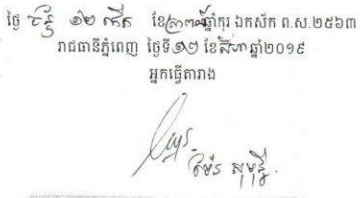 ថ្ងៃ ច័ន្ទ ១២ កើត ខែស្រាពណ៍ ឆ្នាំកុរ ឯកស័ក ព.ស.២៥៦៣
រាជធានីភ្នំពេញ ថ្ងៃទី១២ ខែសីហា ឆ្នាំ២០១៩
អ្នកធ្វើតារាង
ម៉ែន សុមុន្នី